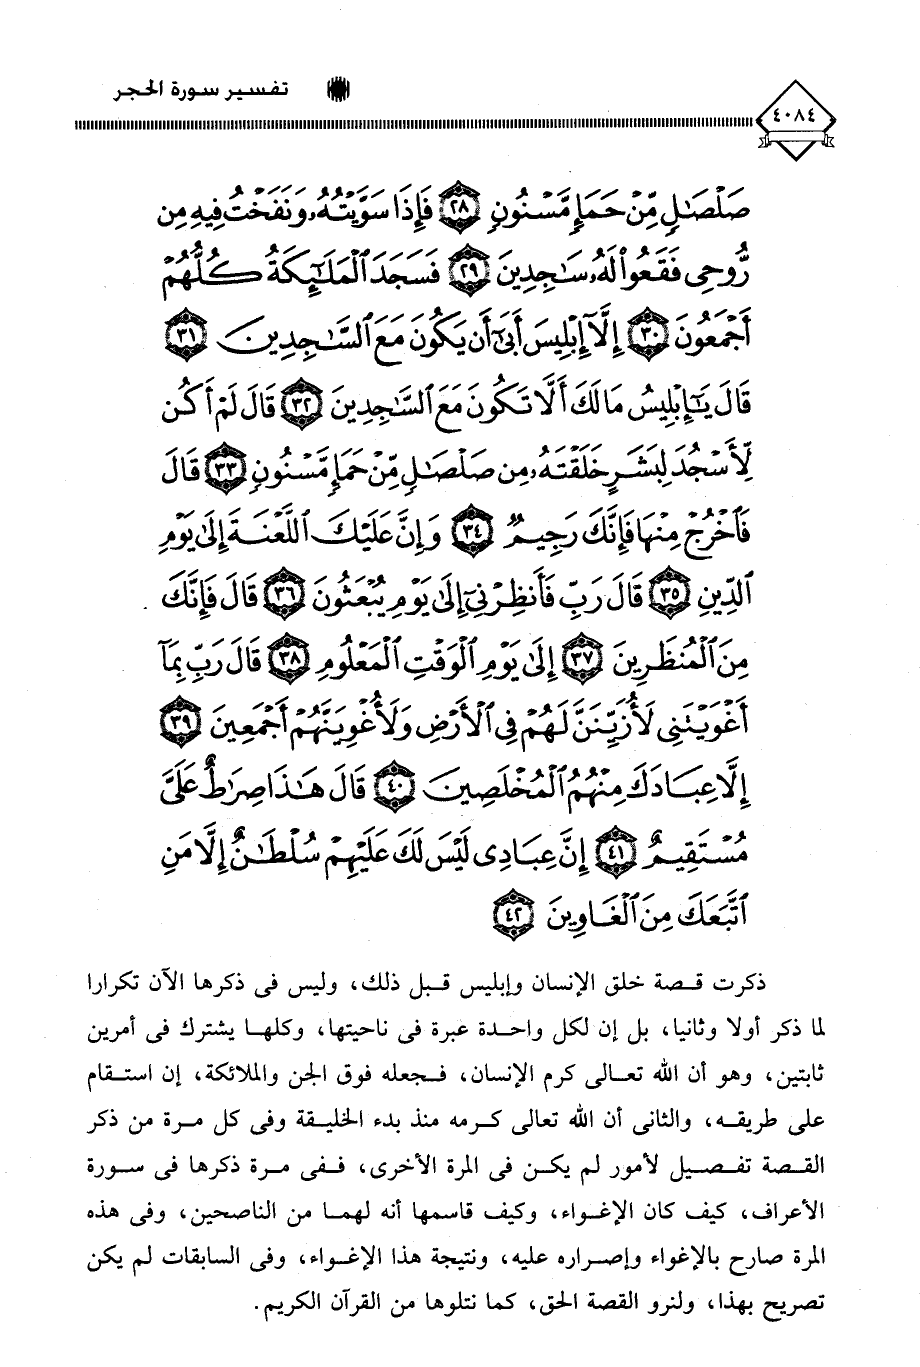 تفسير سورة الحجر
٤٠٨٤
صَلْصَـٰلٍ مِّنْ حَمَإٍ مَّسْنُونٍ ٢٨ فَإِذَا سَوَّيْتُهُۥ وَنَفَخْتُ فِيهِ مِن
رُّوحِى فَقَعُوا۟ لَهُۥ سَـٰجِدِينَ ٢٩ فَسَجَدَ ٱلْمَلَـٰٓئِكَةُ كُلُّهُمْ
أَجْمَعُونَ ٣٠ إِلَّآ إِبْلِيسَ أَبَىٰٓ أَن يَكُونَ مَعَ ٱلسَّـٰجِدِينَ ٣١
قَالَ يَـٰٓإِبْلِيسُ مَا لَكَ أَلَّا تَكُونَ مَعَ ٱلسَّـٰجِدِينَ ٣٢ قَالَ لَمْ أَكُن
لِّأَسْجُدَ لِبَشَرٍ خَلَقْتَهُۥ مِن صَلْصَـٰلٍ مِّنْ حَمَإٍ مَّسْنُونٍ ٣٣ قَالَ
فَٱخْرُجْ مِنْهَا فَإِنَّكَ رَجِيمٌ ٣٤ وَإِنَّ عَلَيْكَ ٱللَّعْنَةَ إِلَىٰ يَوْمِ
ٱلدِّينِ ٣٥ قَالَ رَبِّ فَأَنظِرْنِىٓ إِلَىٰ يَوْمِ يُبْعَثُونَ ٣٦ قَالَ فَإِنَّكَ
مِنَ ٱلْمُنظَرِينَ ٣٧ إِلَىٰ يَوْمِ ٱلْوَقْتِ ٱلْمَعْلُومِ ٣٨ قَالَ رَبِّ بِمَآ
أَغْوَيْتَنِى لَأُزَيِّنَنَّ لَهُمْ فِى ٱلْأَرْضِ وَلَأُغْوِيَنَّهُمْ أَجْمَعِينَ ٣٩
إِلَّا عِبَادَكَ مِنْهُمُ ٱلْمُخْلَصِينَ ٤٠ قَالَ هَـٰذَا صِرَٰطٌ عَلَىَّ
مُسْتَقِيمٌ ٤١ إِنَّ عِبَادِى لَيْسَ لَكَ عَلَيْهِمْ سُلْطَـٰنٌ إِلَّا مَنِ
ٱتَّبَعَكَ مِنَ ٱلْغَاوِينَ ٤٢
ذكرت قصة خلق الإنسان وإبليس قبل ذلك، وليس فى ذكرها الآن تكرارا
لما ذكر أولا وثانيا، بل إن لكل واحدة عبرة فى ناحيتها، وكلها يشترك فى أمرين
ثابتين، وهو أن الله تعالى كرم الإنسان، فجعله فوق الجن والملائكة، إن استقام
على طريقه، والثانى أن الله تعالى كرمه منذ بدء الخليقة وفى كل مرة من ذكر
القصة تفصيل لأمور لم يكن فى المرة الأخرى، ففى مرة ذكرها فى سورة
الأعراف، كيف كان الإغواء، وكيف قاسمها أنه لهما من الناصحين، وفى هذه
المرة صارح بالإغواء وإصراره عليه، ونتيجة هذا الإغواء، وفى السابقات لم يكن
تصريح بهذا، ولنرو القصة الحق، كما نتلوها من القرآن الكريم.